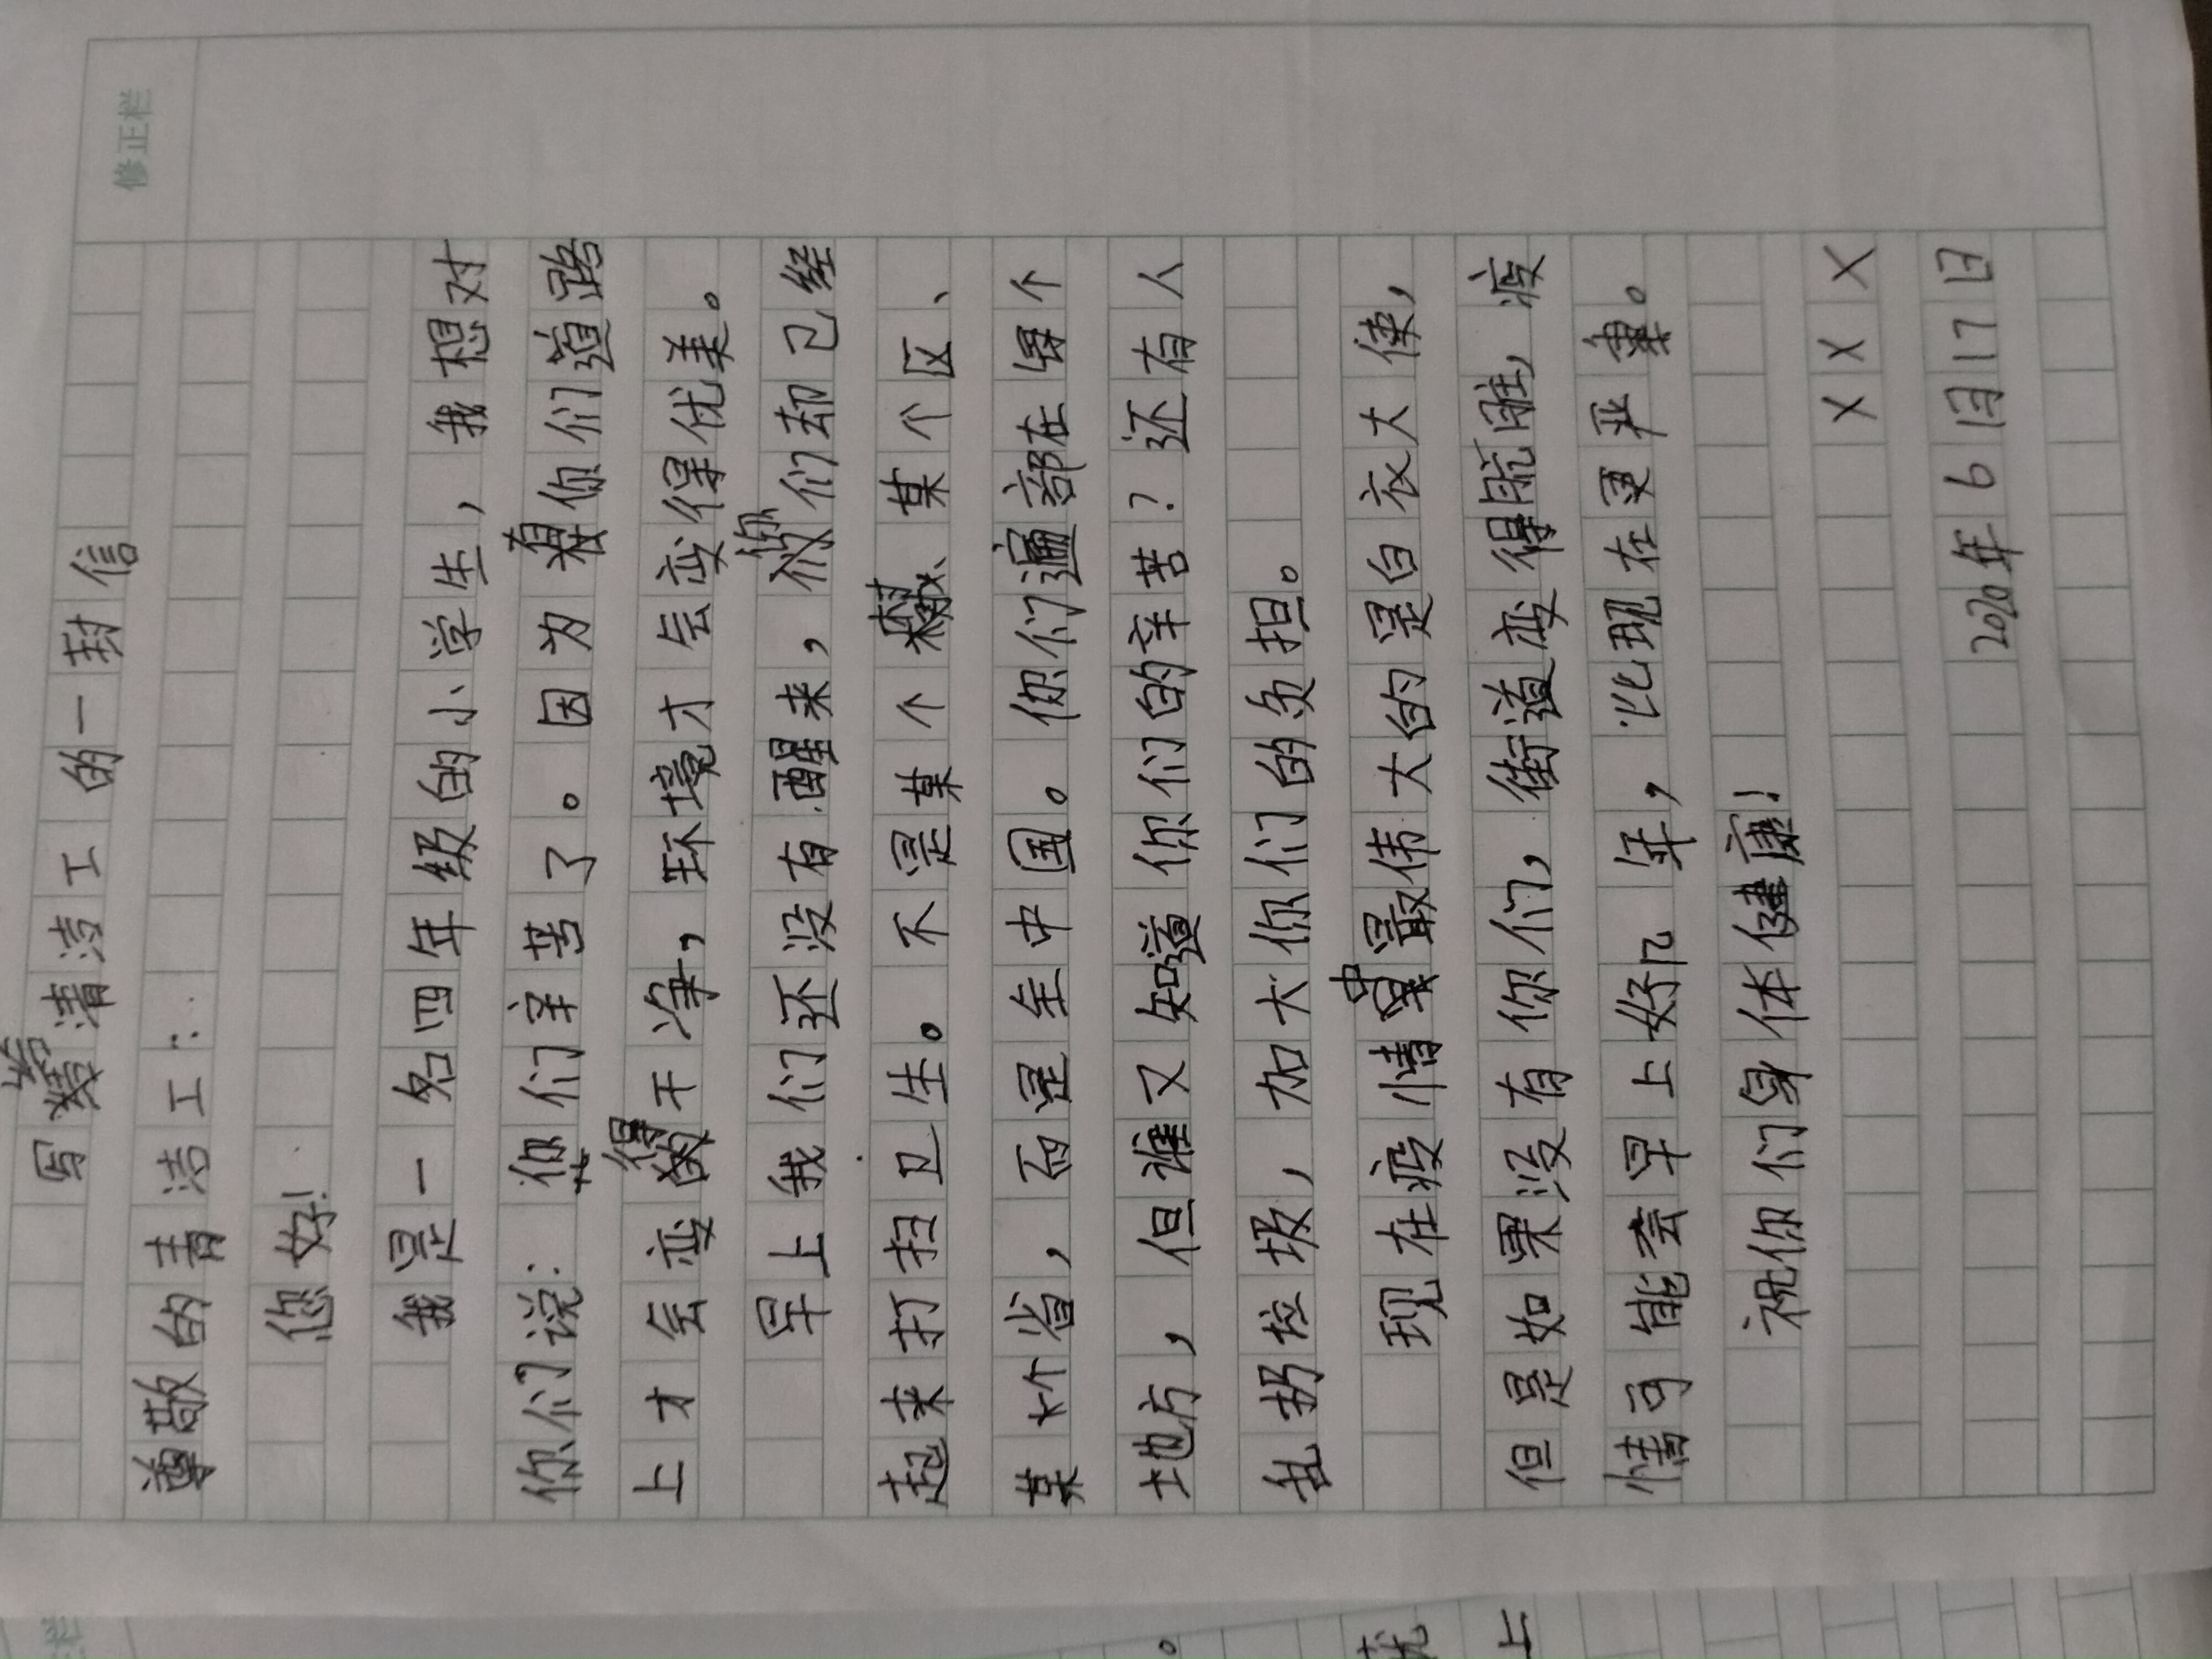 修正栏
写给清洁工的一封信
尊敬的青洁工:
您好!
我是一名四年级的小学生,我想对
你们说:你们辛苦了。因为有你们道路
上才会变得干净,环境才会变得优美。
早上我们还没有醒来,你们却已经
起来打扫卫生。不是某个村、某个区、
某个省,而是全中国。你们遍部在每个
地方,但谁又知道你们的辛苦?还有人
乱扔垃圾,加大你们的负担。
现在疫情中最伟大的是白衣大使,
但是如果没有你们,街道变得肮脏,疫
情可能会早上好几年,比现在更严重。
祝你们身体健康!
XXX
2020年6月17日
栏
。
就
上